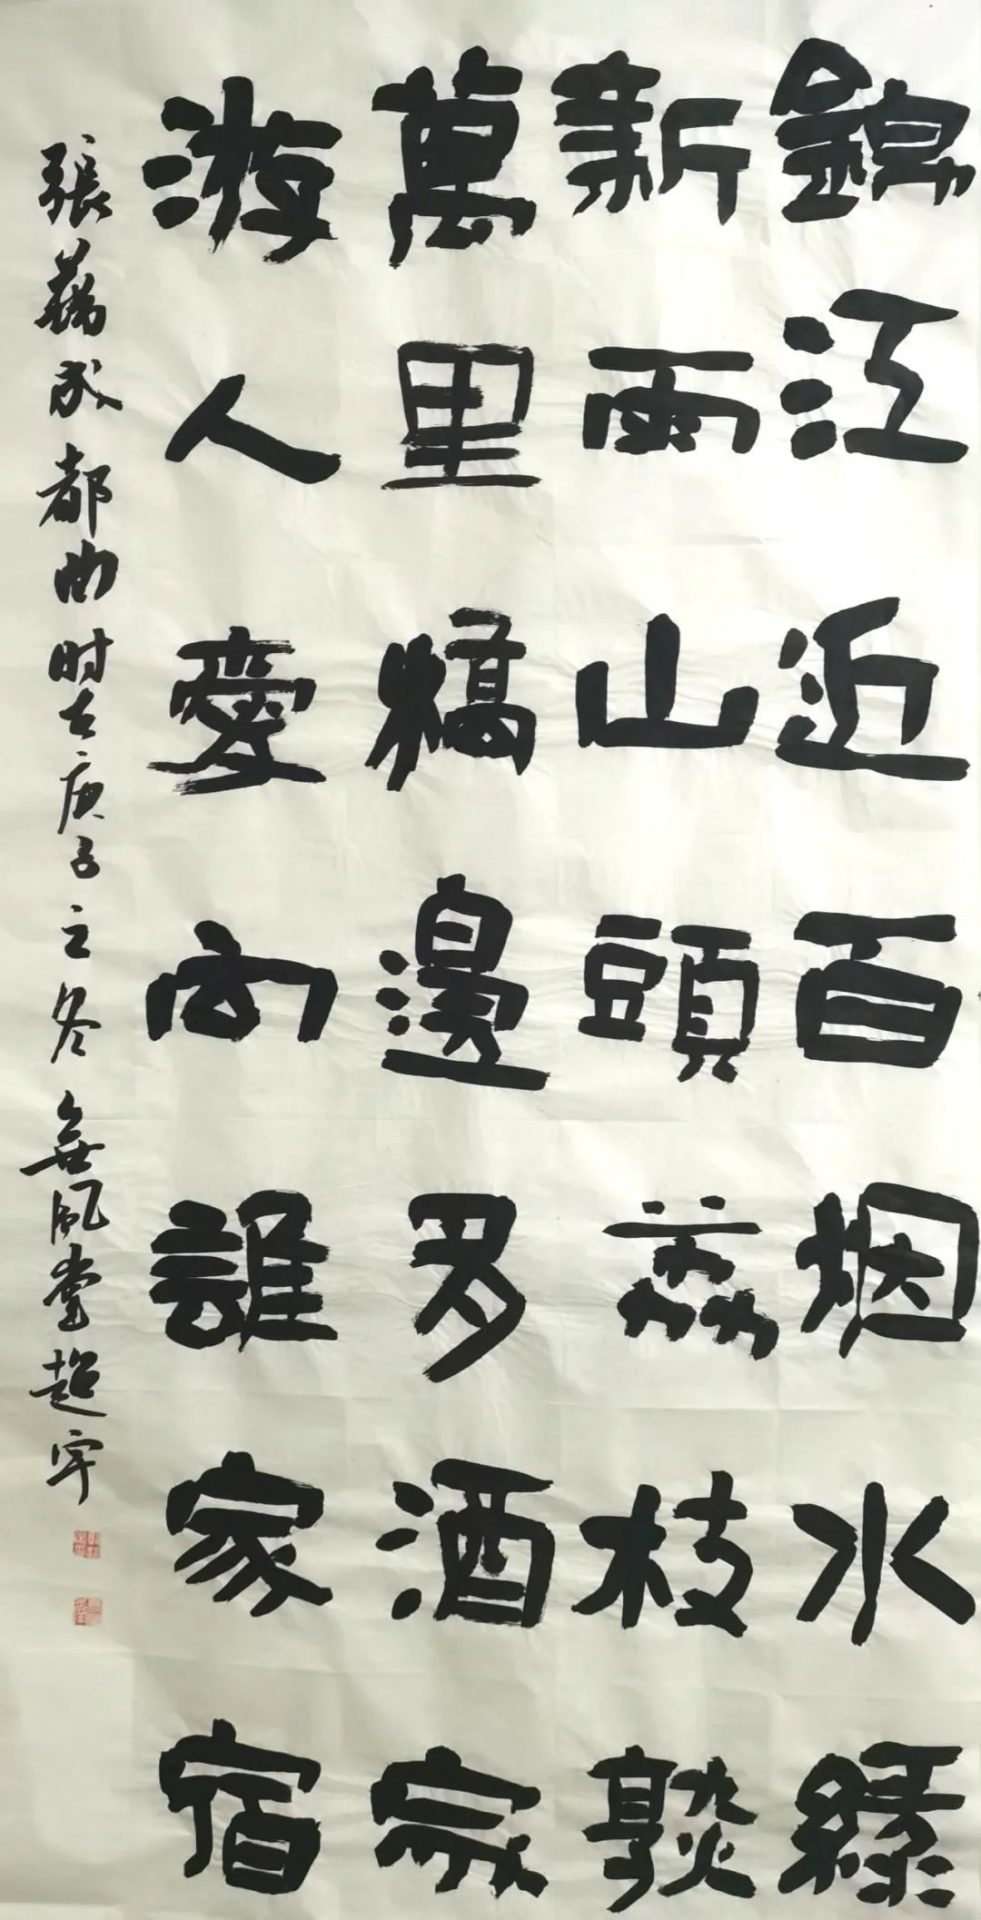 錦江近百烟水緑
新雨山頭荔枝熟
萬里橋邊多酒家
游人愛向誰家宿
張藉成都曲时在庚子之冬無風堂超宇